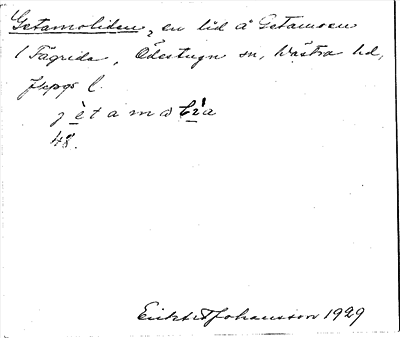 Getamoliden, en lid å Getamoen
i Fägrida, Ödestugu sn, Västra hd,
Jkpgs l.
jètamωlìa
48.
Erikt Johansson 1929